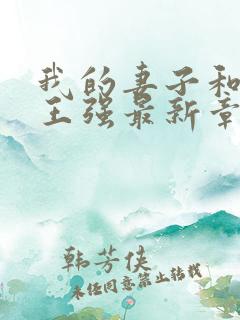 我的妻子和
王强最新章
韩芳侠
未经同意禁止转载